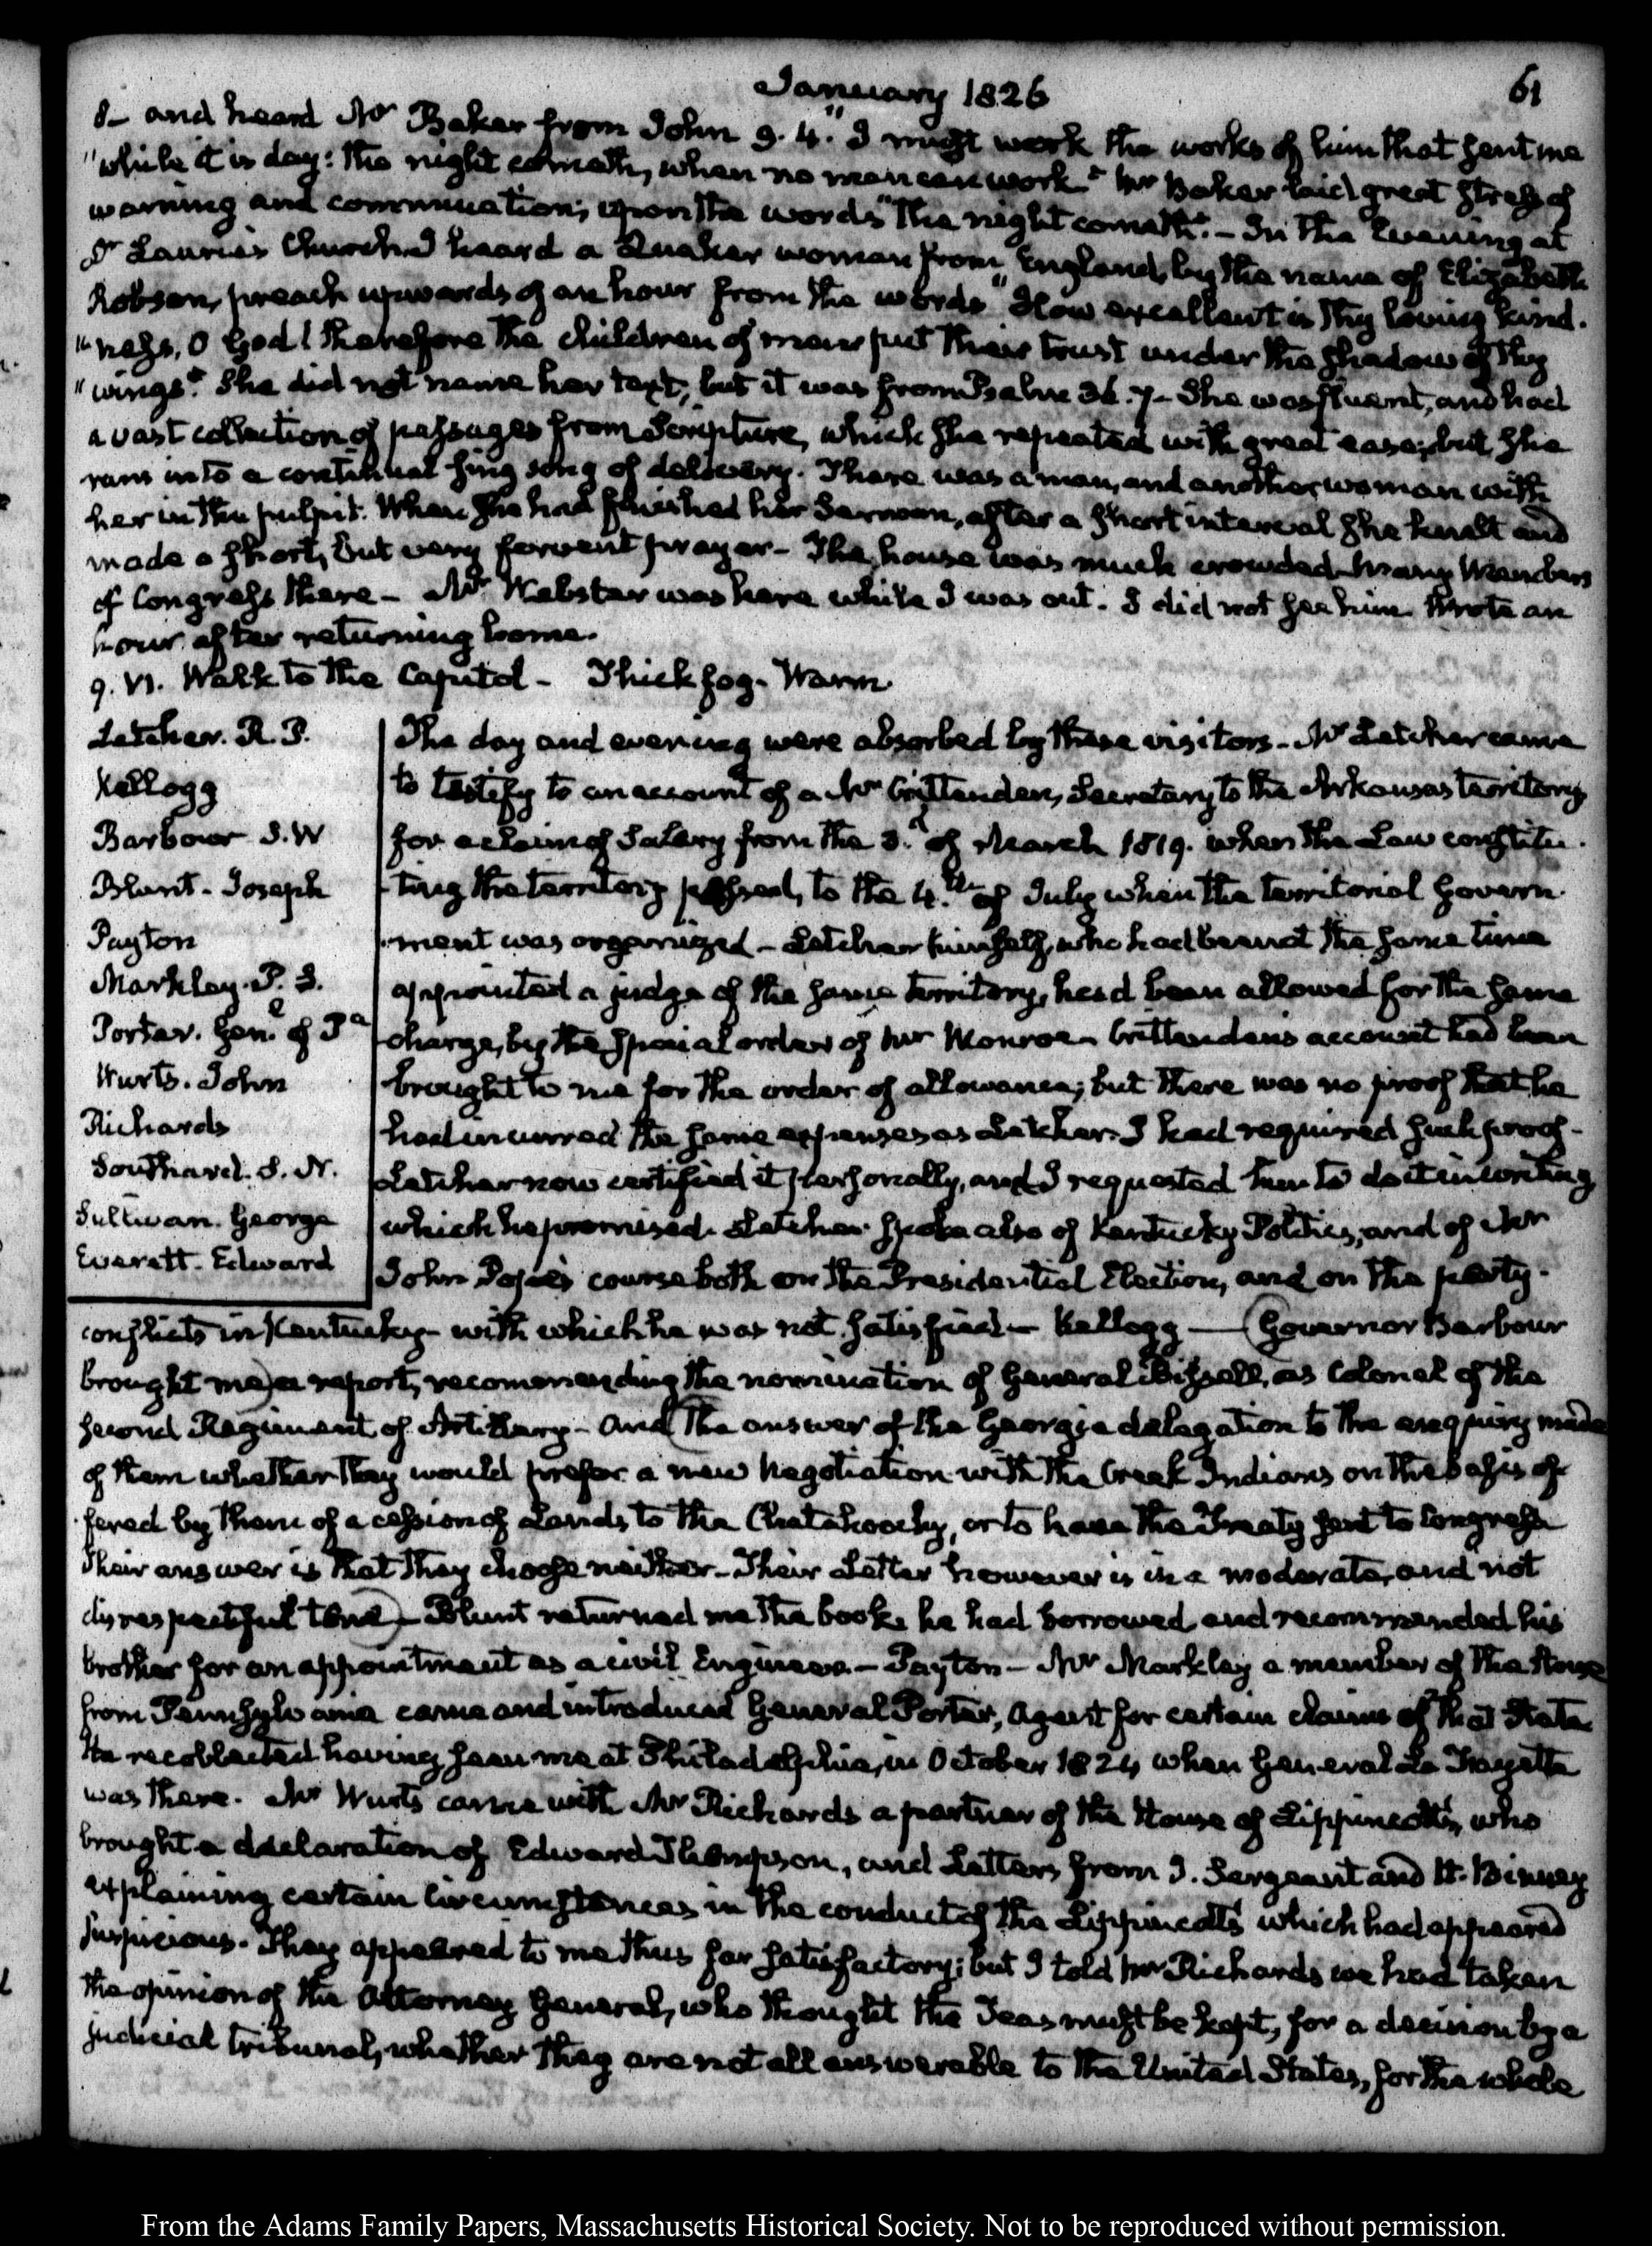 January 1826
61
8— and heard Mr Baker from John 9. 4. "I must work the works of him that sent me
"while it is day: the night cometh, when no man can work." Mr Baker laid great stress of
warning and commination, upon the words "the night cometh." — In the Evening at
Dr Laurie's Church I heard a Quaker woman from England, by the name of Elizabeth
Robson, preach upwards of an hour from the words "How excellent is thy loving kind-
"ness, O God! therefore the children of men put their trust under the shadow of thy
"wings." She did not name her text, but it was from Psalm 36. 7— She was fluent, and had
a vast collection of passages from Scripture, which she repeated with great ease; but she
ran into a continual sing song of delivery. There was a man, and another woman with
her in the pulpit. When she had finished her Sermon, after a short interval she knelt and
made a short, but very fervent prayer— The house was much crowded— many Members
of Congress there— Mr Webster was here while I was out. I did not see him. Wrote an
hour after returning home.
9. VI. Walk to the Capitol— Thick fog— Warm.
Letcher. R. P.
Kellogg
Barbour J. W
Blunt— Joseph
Payton
Markley. P. S.
Porter. Genl of Pa
Wurts. John
Richards
Southard. S. N.
Sullivan. George
Everett. Edward
The day and evening were absorbed by these visitors— Mr Letcher came
to testify to an account of a Mr Crittenden, Secretary to the Arkansas territory
for a claim of Salary from the 3d of March 1819. when the Law constitu-
-ting the territory passed, to the 4th of July when the territorial Govern-
-ment was organized— Letcher himself, who had been at the same time
appointed a judge of the same territory, had been allowed for the same
charge, by the special order of Mr Monroe— Crittenden's account had been
brought to me for the order of allowance; but there was no proof that he
had incurred the same expenses as Letcher. I had required such proof—
Letcher now certified it personally, and I requested him to do it in writing
which he promised. Letcher spoke also of Kentucky Politics, and of Mr
John Pope's course both on the Presidential Election, and on the party-
conflicts in Kentucky— with which he was not satisfied— Kellogg — (Governor Barbour
brought me) a report, recommending the nomination of General Bissell, as Colonel of the
second Regiment of Artillery— and (the answer of the Georgia delegation to the enquiry made
of them whether they would prefer a new negotiation with the Creek Indians on the basis of-
-fered by them of a cession of Lands to the Chatahoochy, or to have the Treaty sent to Congress
Their answer is that they choose neither— Their Letter however is in a moderate, and not
disrespectful tone)— Blunt returned me the books he had borrowed and recommended his
brother for an appointment as a civil Engineer— Payton— Mr Markley a member of the House
from Pennsylvania came and introduced General Porter, Agent for certain claims of that State.
He recollected having seen me at Philadelphia, in October 1824 when General La Fayette
was there. Mr Wurts came with Mr Richards a partner of the House of Lippincott's, who
brought a declaration of Edward Thompson, and Letters from J. Sergeant and H. Binney
explaining certain circumstances in the conduct of the Lippincotts which had appeared
suspicious. They appeared to me thus far satisfactory; but I told Mr Richards we had taken
the opinion of the Attorney General, who thought the Teas must be kept, for a decision by a
judicial tribunal, whether they are not all answerable to the United States, for the whole
From the Adams Family Papers, Massachusetts Historical Society. Not to be reproduced without permission.